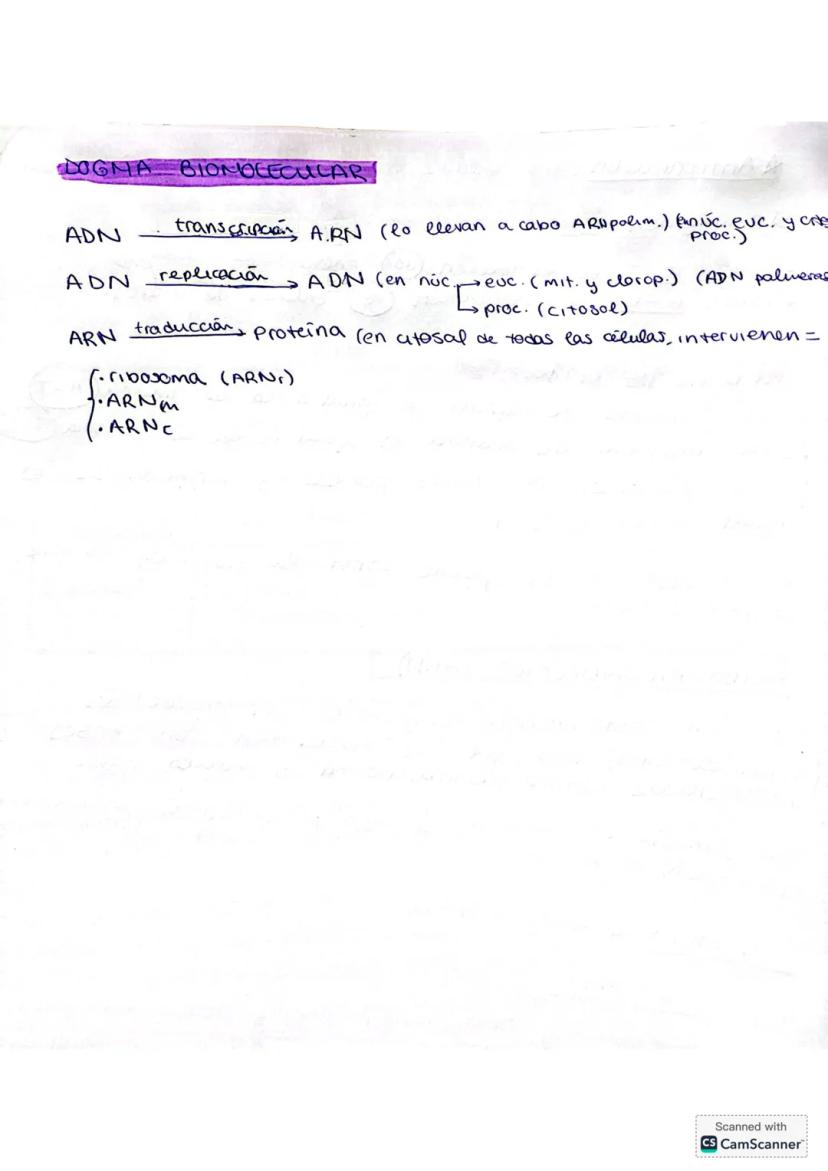 DOGMA BIOMOLECULAR
ADN transcripción ARN (lo llevan a cabo ARNpolim.) (en núc. euc. y
proc.)
ADN replicación ADN (en núc. euc. (mit. y clorop.) (ADN
proc. (citosol)
ARN traducción proteína (en citosol de todas las células, intervienen =
· ribosoma (ARNr)
· ARNm
· ARNc
Scanned with
CS CamScanner